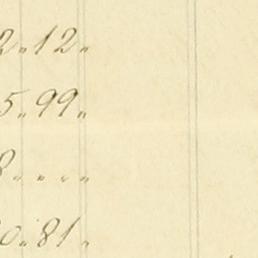 2„12„
5„99„
8„„„„
0„81„